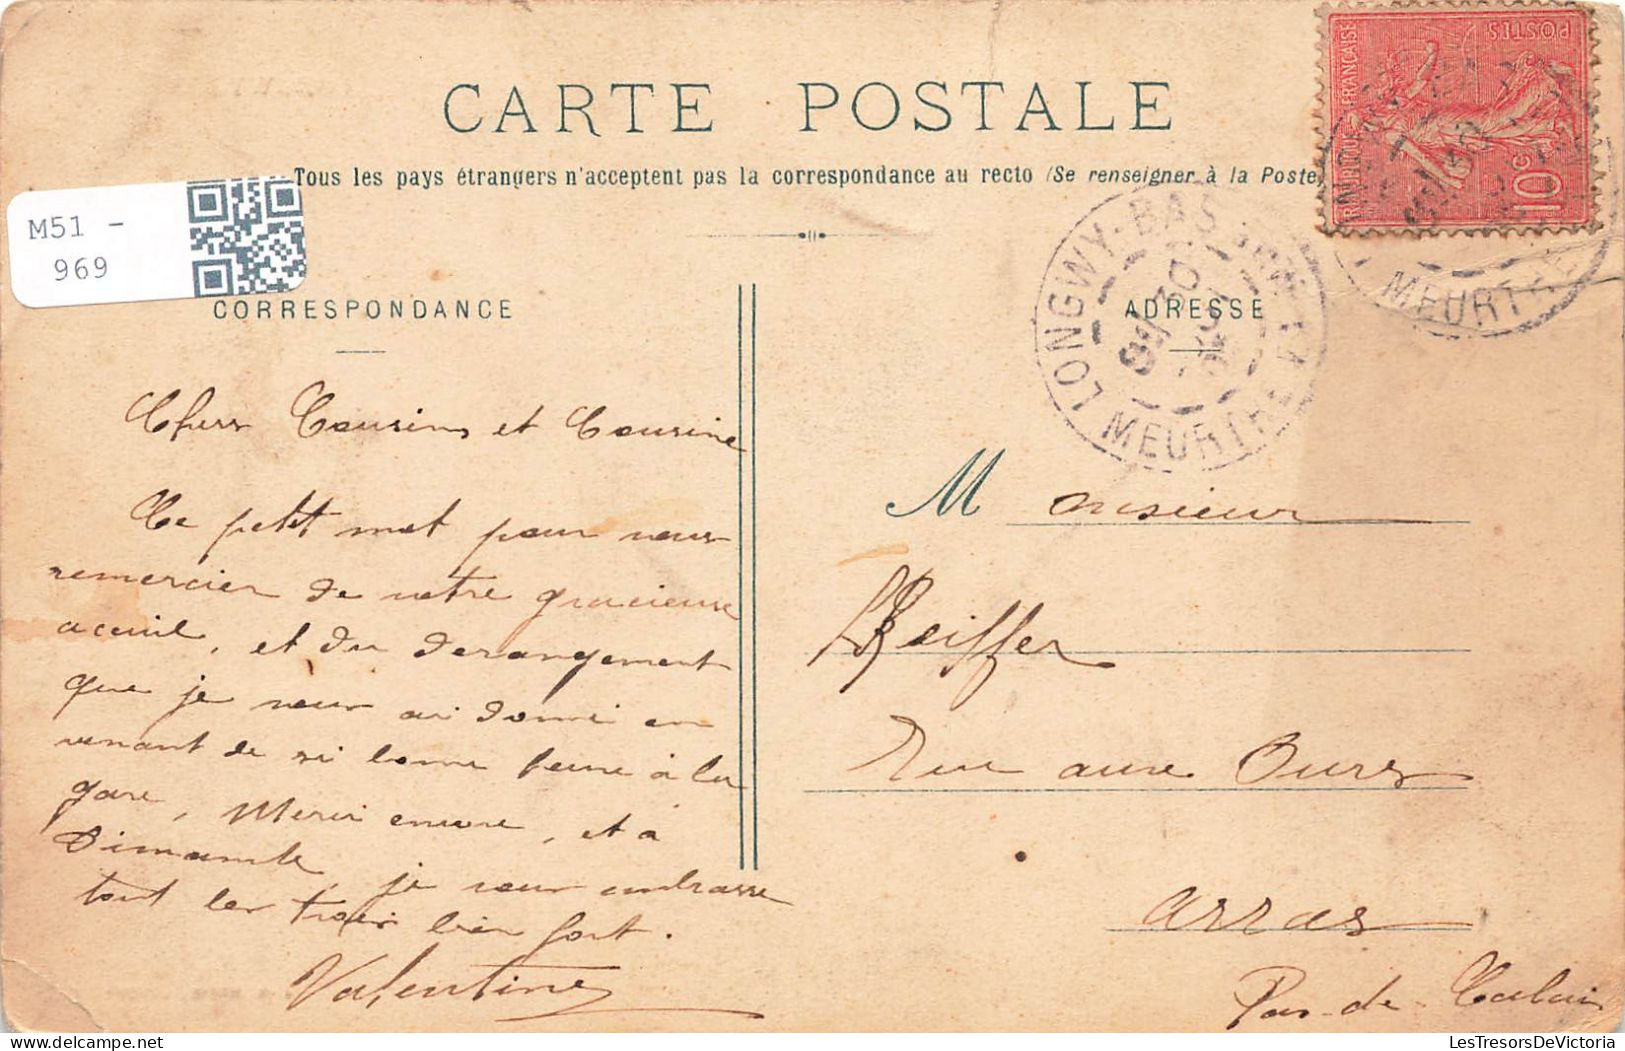 CARTE POSTALE
Tous les pays étrangers n'acceptent pas la correspondance au recto (Se renseigner à la Poste)
RÉPUBLIQUE FRANÇAISE
POSTES
10c
M51 -
969
CORRESPONDANCE
ADRESSE
LONGWY-BAS
MEURTHE ET
MEURTHE
Chers Cousins et Cousine
Ce petit mot pour vous
remercier de votre gracieuse
acceuil, et du derangement
que je vous ai donné en
venant de si bonne heure à la
gare, Merci encore, et à
Dimanche je vous embrasse
tout les trois bien fort.
Valentine
Monsieur
Peiffer
Rue aux Ours
Arras
Pas-de-Calais
LesTresorsDeVictoria